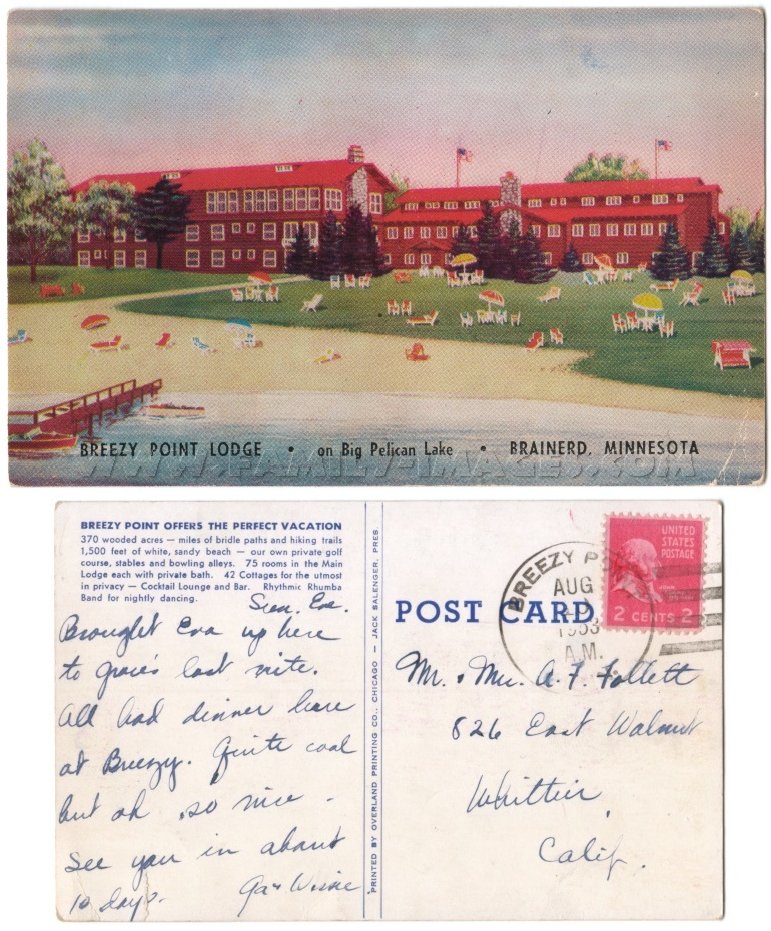 BREEZY POINT LODGE • on Big Pelican Lake • BRAINERD, MINNESOTA
WWW.FAMILY-IMAGES.COM
BREEZY POINT OFFERS THE PERFECT VACATION
370 wooded acres — miles of bridle paths and hiking trails
1,500 feet of white, sandy beach — our own private golf
course, stables and bowling alleys. 75 rooms in the Main
Lodge each with private bath. 42 Cottages for the utmost
in privacy — Cocktail Lounge and Bar. Rhythmic Rhumba
Band for nightly dancing.
Sun. Eve.
Brought Eva up here
to Grace's last nite.
All had dinner here
at Breezy. Quite cool
but oh so nice -
See you in about
10 days.
PRINTED BY OVERLAND PRINTING CO., CHICAGO — JACK SALENGER, PRES.
POST CARD
BREEZY PO
AUG
1953
A.M.
UNITED
STATES
POSTAGE
JOHN
2 CENTS 2
Mr. & Mrs. A. F. Follett
826 East Walnut
Whittier,
Calif.